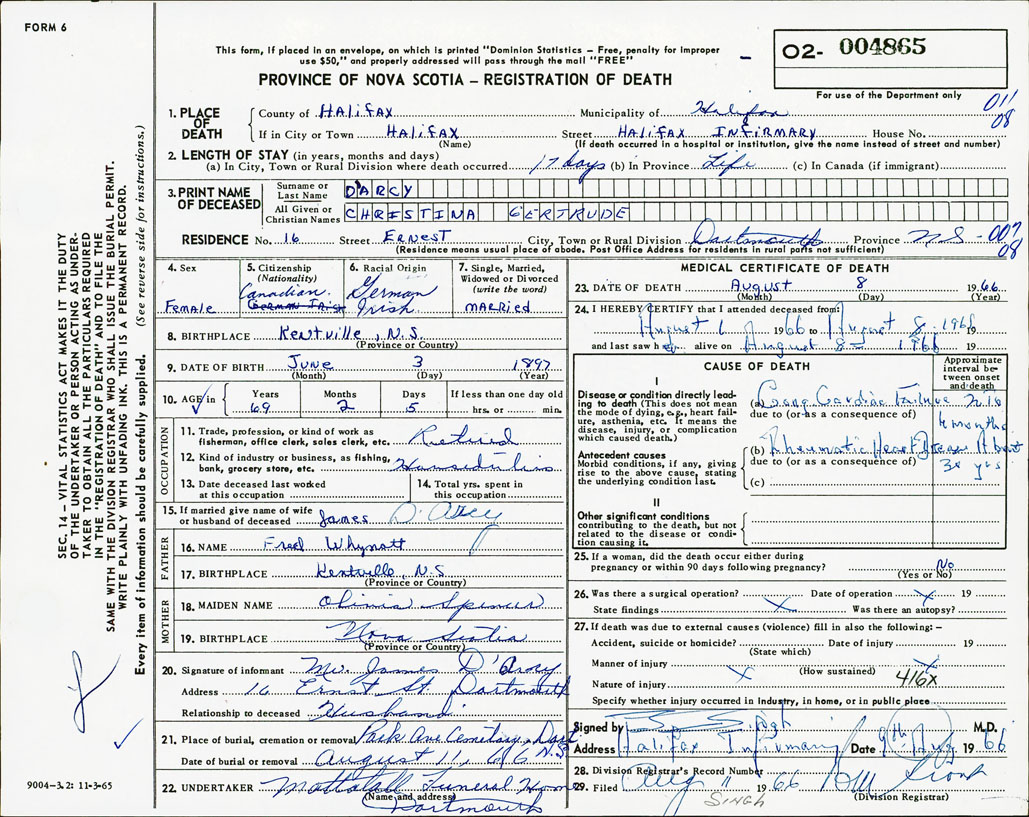 FORM 6
This form, if placed in an envelope, on which is printed "Dominion Statistics – Free, penalty for improper
use $50," and properly addressed will pass through the mail "FREE"
PROVINCE OF NOVA SCOTIA – REGISTRATION OF DEATH
O2- 004865
For use of the Department only
011
08
1. PLACE OF DEATH
County of HALIFAX Municipality of Halifax
If in City or Town HALIFAX Street HALIFAX INFIRMARY House No.
(Name) (If death occurred in a hospital or institution, give the name instead of street and number)
2. LENGTH OF STAY (in years, months and days)
(a) In City, Town or Rural Division where death occurred 17 days (b) in Province Life (c) In Canada (if immigrant)
3. PRINT NAME OF DECEASED
Surname or Last Name D'ARCY
All Given or Christian Names CHRISTINA GERTRUDE
RESIDENCE No. 16 Street ERNEST City, Town or Rural Division Dartmouth Province NS 007
08
(Residence means usual place of abode. Post Office Address for residents in rural parts not sufficient)
4. Sex
Female
5. Citizenship
(Nationality)
Canadian
6. Racial Origin
German
Irish
7. Single, Married,
Widowed or Divorced
(write the word)
MARRIED
8. BIRTHPLACE Kentville, N.S.
(Province or Country)
9. DATE OF BIRTH June 3 1897
(Month) (Day) (Year)
10. AGE in Years Months Days If less than one day old
69 2 5 hrs. or min.
OCCUPATION
11. Trade, profession or kind of work as
fisherman, office clerk, sales clerk, etc. Retired
12. Kind of industry or business, as fishing,
bank, grocery store, etc.
13. Date deceased last worked
at this occupation
14. Total yrs. spent in
this occupation
15. If married give name of wife
or husband of deceased James D'Arcy
FATHER
16. NAME Fred Whynott
17. BIRTHPLACE Kentville, N.S.
(Province or Country)
MOTHER
18. MAIDEN NAME Spencer
19. BIRTHPLACE Nova Scotia
(Province or Country)
20. Signature of informant Mr. James D'Arcy
Address 16 Ernst St. Dartmouth
Relationship to deceased Husband
21. Place of burial, cremation or removal Park Ave Cemetery, Dart
N.S.
Date of burial or removal August 11, 66
22. UNDERTAKER Mattatall Funeral Home
(Name and address)
Dartmouth
MEDICAL CERTIFICATE OF DEATH
23. DATE OF DEATH August 8 1966
(Month) (Day) (Year)
24. I HEREBY CERTIFY that I attended deceased from:
August 6 1966 to August 8 1966 19
and last saw her alive on August 8 1966 19
CAUSE OF DEATH
Approximate
interval be-
tween onset
and death
I
Disease or condition directly lead-
ing to death (This does not mean
the mode of dying, e.g., heart fail-
ure, asthenia, etc. It means the
disease, injury, or complication
which caused death.)
(a) Cong Cardiac Failure
due to (or as a consequence of) months
Antecedent causes
Morbid conditions, if any, giving
rise to the above cause, stating
the underlying condition last.
(b) Rheumatic Heart Disease
due to (or as a consequence of) yrs
(c)
II
Other significant conditions
contributing to the death, but not
related to the disease or condi-
tion causing it.
25. If a woman, did the death occur either during
pregnancy or within 90 days following pregnancy? No
(Yes or No)
26. Was there a surgical operation? Date of operation x 19
State findings x Was there an autopsy?
27. If death was due to external causes (violence) fill in also the following: –
Accident, suicide or homicide? Date of injury 19
(State which)
Manner of injury x
(How sustained)
Nature of injury x 416x
Specify whether injury occurred in industry, in home, or in public place
Signed by Singh M.D.
Address Halifax Infirmary Date 9th Aug 1966
28. Division Registrar's Record Number
29. Filed Aug 11 1966
SINGH
(Division Registrar)
SEC. 14 – VITAL STATISTICS ACT MAKES IT THE DUTY
OF THE UNDERTAKER OR PERSON ACTING AS UNDER-
TAKER TO OBTAIN ALL THE PARTICULARS REQUIRED
IN THE "REGISTRATION OF DEATH" AND TO FILE THE
SAME WITH THE DIVISION REGISTRAR WHO SHALL ISSUE THE BURIAL PERMIT.
WRITE PLAINLY WITH UNFADING INK. THIS IS A PERMANENT RECORD.
Every item of information should be carefully supplied. (See reverse side for instructions.)
9004–3.2: 11-3-65